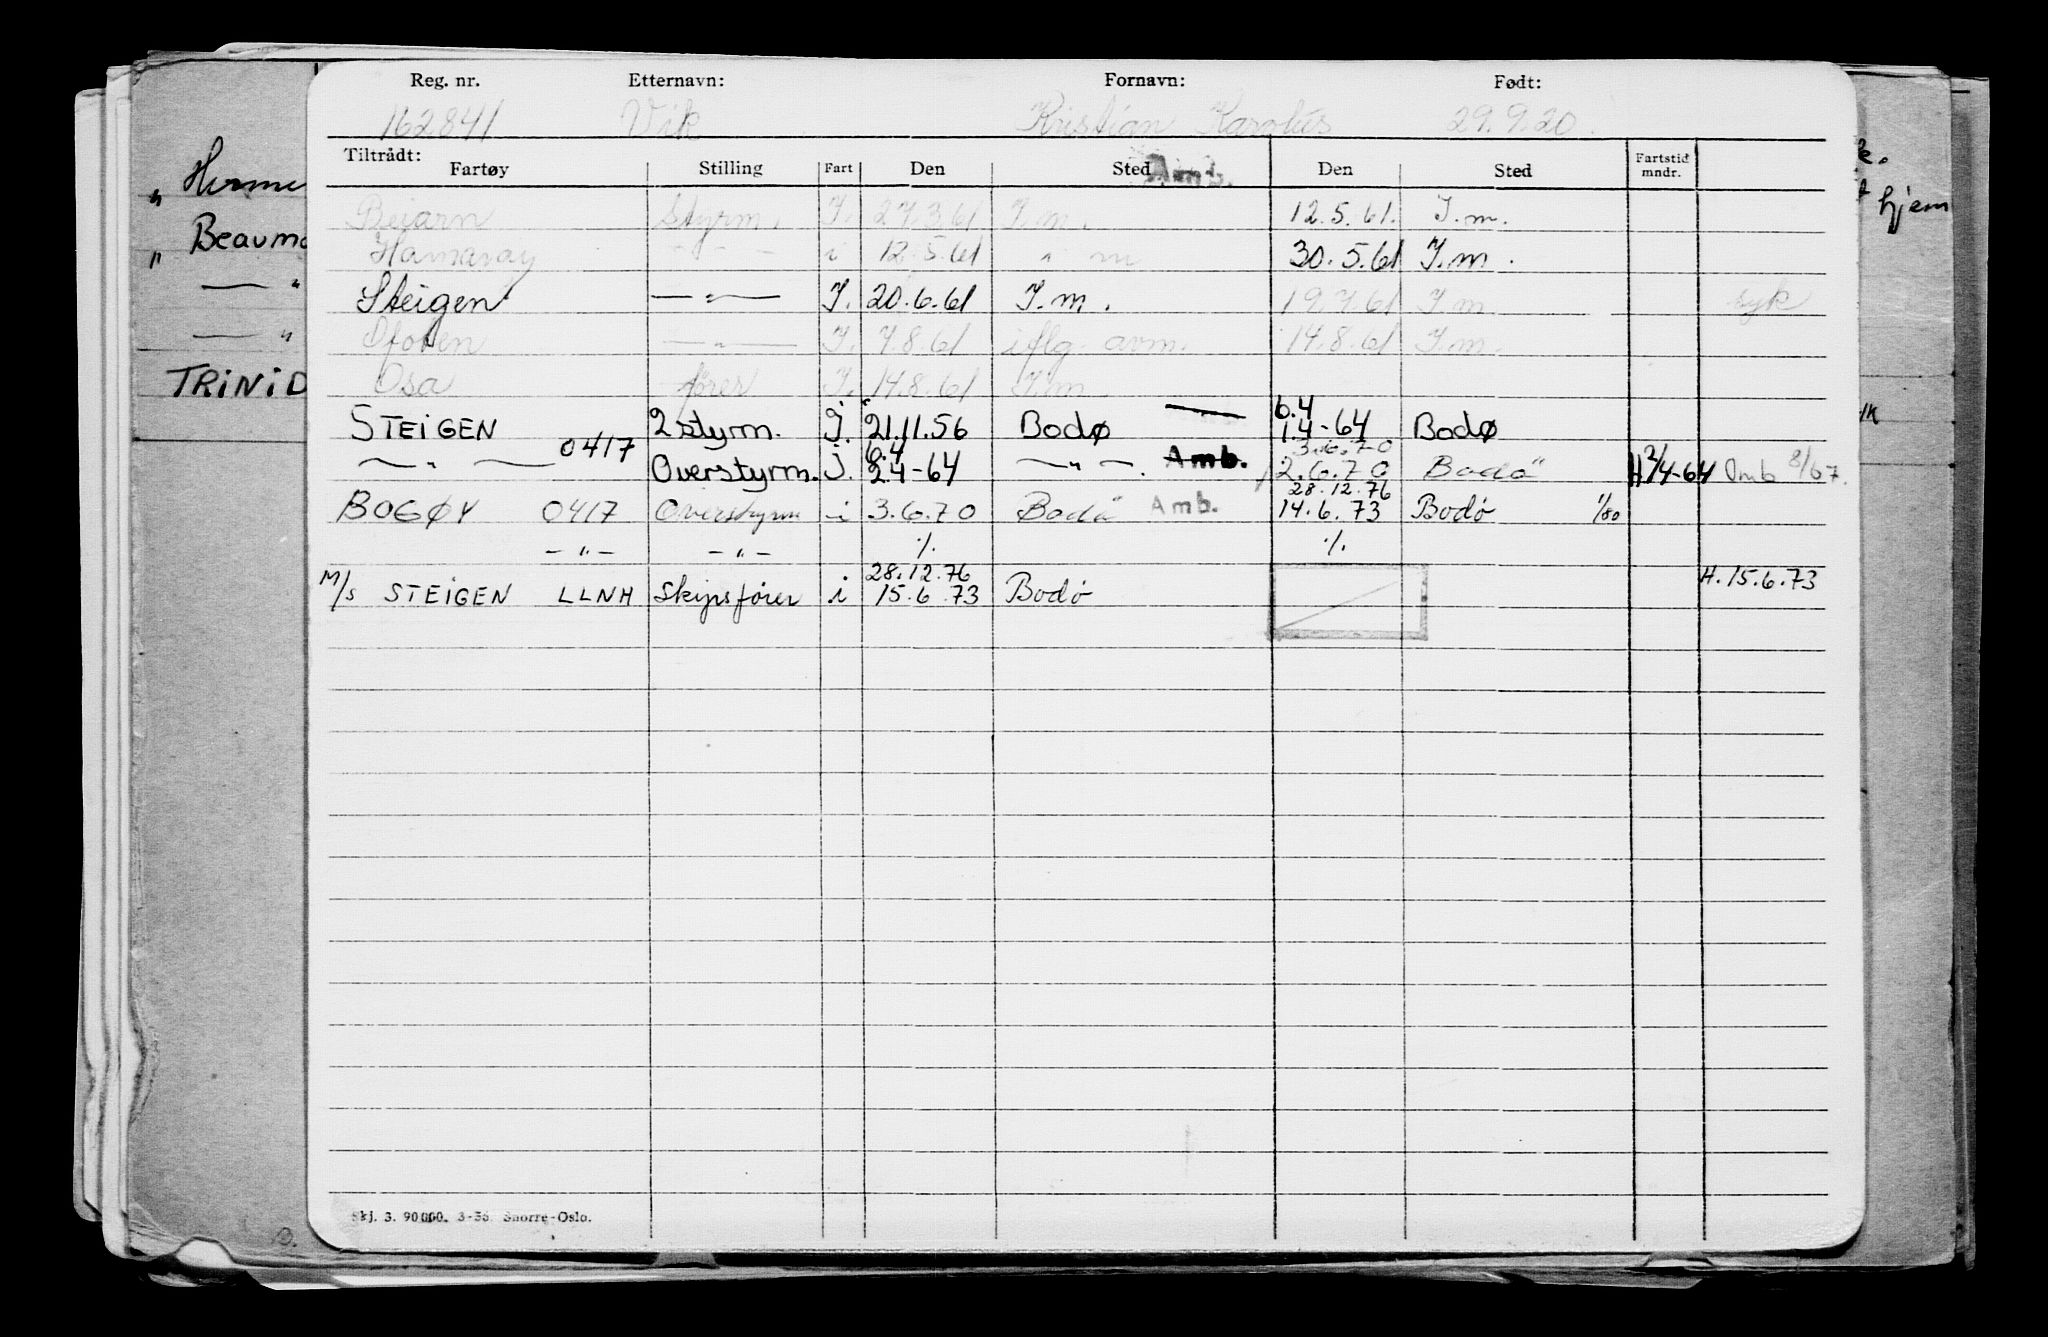 Reg. nr. Etternavn: Fornavn: Født:
162841 Vik Kristian 29.9.20.
Tiltrådt:
Fartøy Stilling Fart Den Sted Amb. Den Sted Fartstid mndr.
Beiarn styrm. I. 27.3.61 I.m. 12.5.61. I.m.
Hamarøy - " - i 12.5.61 " m 30.5.61 I.m.
Steigen — " — I. 20.6.61 I.m. 19.7.61 I.m syk
Ofoten — " — I. 7.8.61 iflg. avm. 14.8.61 I.m.
Osa fører I. 14.8.61 I.m
6.4
STEIGEN 2 styrm. I. 21.11.56 Bodø 1.4-64 Bodø
6.4 3.6.70
— " — 0417 Overstyrm. i. 2.4-64 — " —. Amb. 2.6.70 Bodø H 2/4-64 Omb 8/67.
28.12.76
BOGØY 0417 Overstyrm i 3.6.70 Bodø Amb. 14.6.73 Bodø 1/80
- " - - " - ./. ./.
28.12.76
M/s STEIGEN LLNH Skipsfører i 15.6.73 Bodø H. 15.6.73
Skj. 3. 90000. 3-56. Snorre-Oslo.
" Herme
" Beaumo
— "
— "
TRINID
k.
hjem